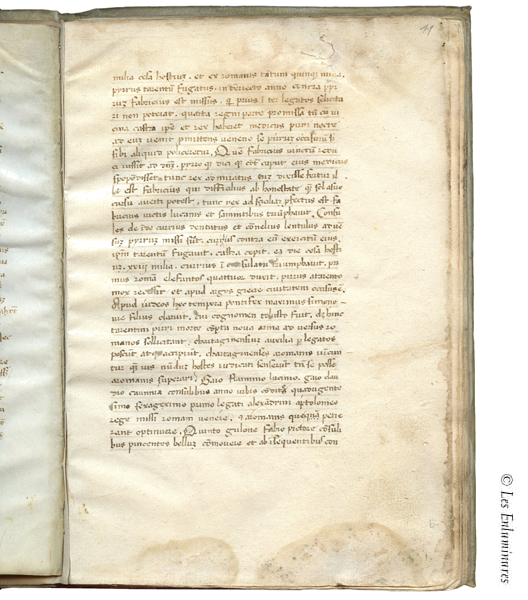 11
milia cesa hostiuz. et ex romanis tantum quinqz milia,
pyrrus tarentum fugatus. interiecto anno contra pyr
ruz fabricius est missus. qui prius inter legatos solicita
ri non poterat. quarta regni parte promissa tunc cum vi
cina castra ipse et rex haberet medicus pirri nocte
ad eum venit
sibi aliquid polliceretur. Quem fabricius vinctum redu
ci iussit ad dominum. pyrro qz dici que contra caput eius medicus
spopondisset tunc rex admiratus eum dixisse fertur il
le est fabricius qui difficilius ab honestate qz sol a suo
cursu averti potest, tunc rex ad siciliam profectus est fa
bricius victis lucanis et samnitibus triumphavit. Consu
les deinde curius dentatus et cornelius lentulus adver
suz pyrruz missi sunt. curius contra eum exercitum eius
ipsum tarentum fugavit. castra cepit. ea die cesa hosti
um. xxiii milia. curius in consulatu triumphavit. pri
mus romam elefantos quattuor duxit. pirrus a tarento
mox recessit et apud argos grecie civitatem occisus est.
Apud iudeos hec tempora pontifex maximus simone
nie filius claruit. cui cognomen iobisto fuit. dehinc
tarentini pirri morte comperta nova arma adversus ro
manos sollicitant, chartaginensium auxilia per legatos
poscunt atqz accipiunt, chartaginenses a romanis vincun
tur qui nundum hostes iudicati senserunt tamen se posse
a romanis superari. Gaio flaminio lucinio. gaio clau
dio caninia consulibus anno urbis condite quadringente
simo sexagesimo primo legati alexandrini a ptolomeo
rege missi romam venere. et a romanis quequam petie
rant optinuere. Quinto gulone fabio pictore consuli
bus picentes belluz commovere et ab insequentibus con
© Les Enluminures